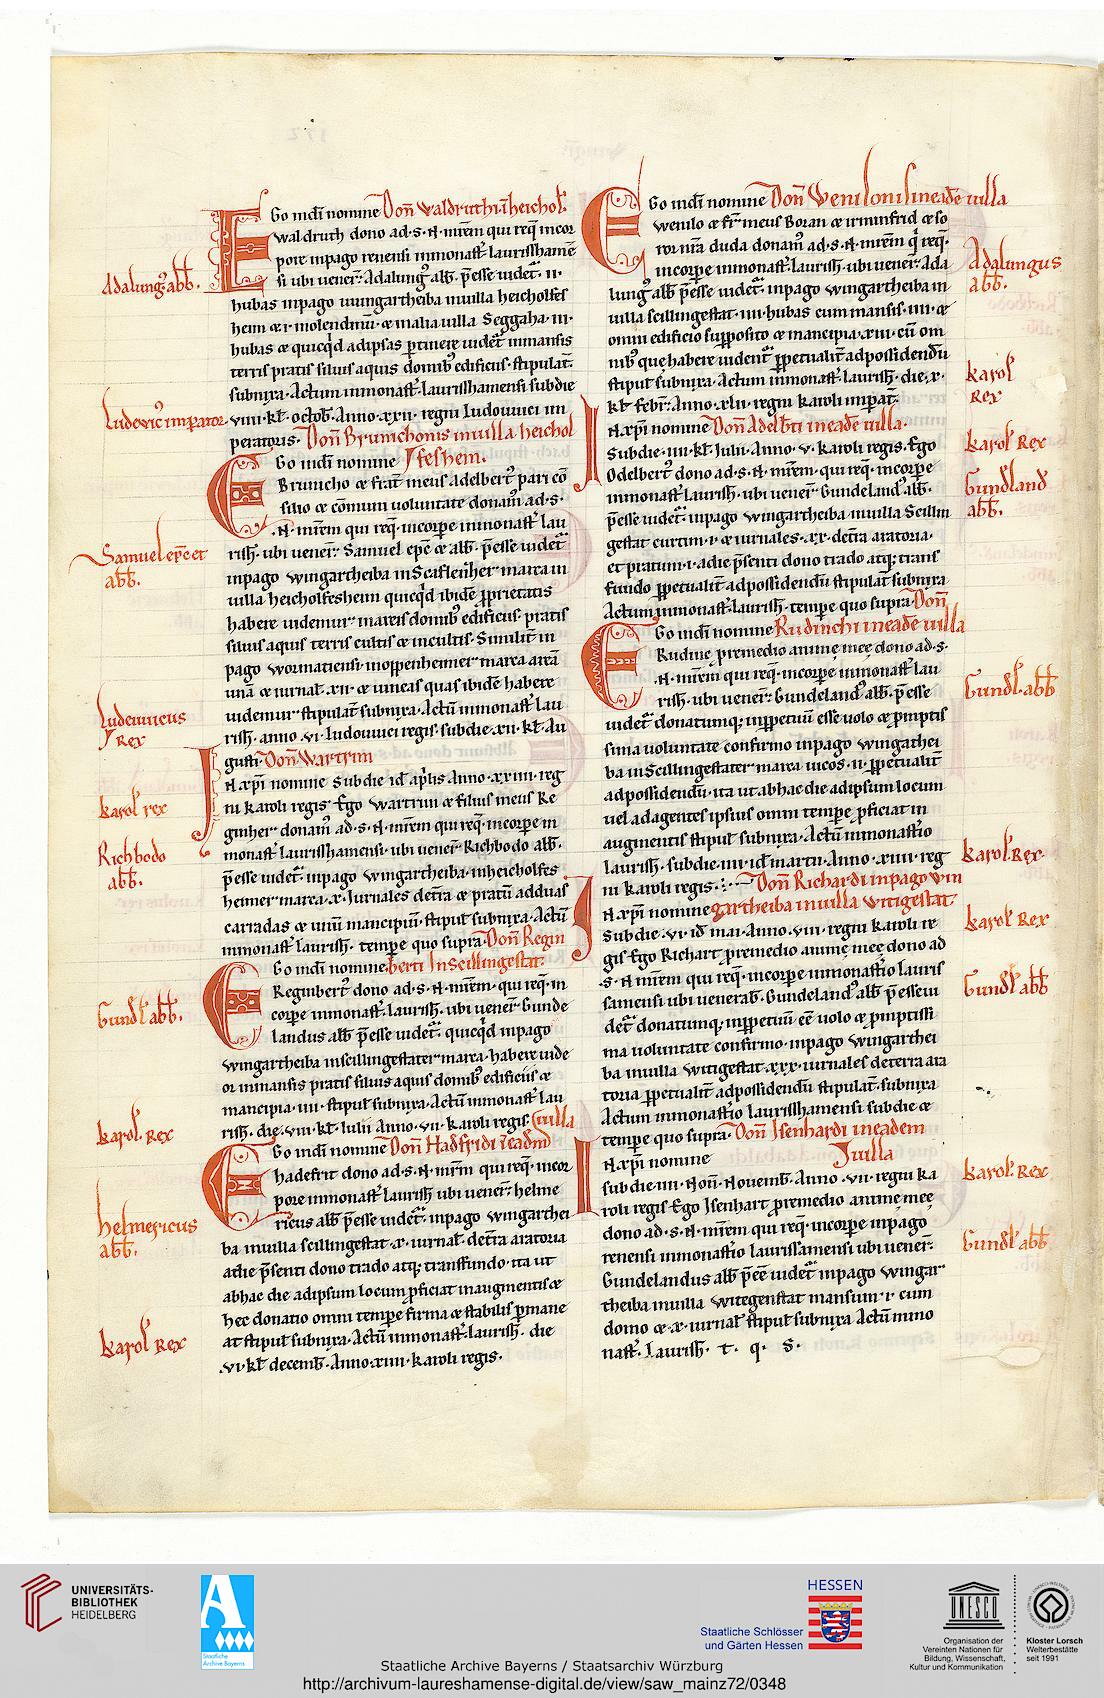 Don̄ Waldruthi. ī heichol.
Ego in dī nomine
waldruth dono ad. s. N. mr̄em qui req̄. in cor
pore in pago renensi in monast̄. laurisshamē
si ubi uener̄. Adalung᷒ abb̄. p̄esse uidet̄. II.
hubas in pago uuingartheiba in uilla heicholfes
heim & I. molendinū. & in alia uilla Seggaha. III.
hubas & quicq̄d ad ipsas ꝑtinere uidet̄ in mansis
terris pratis siluis aquis domib᷒ edificiis. stipulat̄.
subnixa. Actum in monast̄. laurisshamensi sub die
VIII. kl̄. octob̄. Anno. XXII. regni Ludouuici im
peratoris. Don̄ Brunichonis in uilla heichol
Ego in dī nomine | fesheim.
Brunicho & frat̄ meus adelbert᷒ pari cō
silio & cōmuni voluntate donam᷒ ad. s.
.N. mr̄em qui req̄. in corpe in monast̄ lau
rish̄. ubi uener̄. Samuel ep̄c & abb̄. p̄esse uidet̄
in pago wingartheiba in Scaflenh̄er marca in
uilla heicholfesheim quicq̄d ibidē ꝓprietatis
habere uidemur mareis domib᷒ edificiis pratis
siluis aquis terris cultis & incultis. Similit̄ in
pago wormatiensi in oppenheimer marca areā
unā & iurnal̄. XII. & uineas quas ibidē habere
uidemur stipulat̄ subnixa. Actū in monast̄ lau
rish̄. anno. VI. Ludouuici regis. sub die. XII. kl̄. Au
gusti. Don̄ Wartrini
In xp̄i nomine sub die id̄ aplis Anno. XXIIII. reg
ni karoli regis. Ego wartrin & filius meus Re
ginher donam᷒ ad. s. N. mr̄em qui req̄. in corpe in
monast̄ laurishhamensi. ubi uener̄ Richbodo abb̄.
p̄esse uidet̄. in pago wingartheiba. in heicholfes
heimer marca. X. Iurnales de t̄ra & pratū ad duas
carradas & unū mancipiū. stipul̄ subnixa. Actū
in monast̄ laurish̄. tempe quo supra. Don̄ Regin
Ego in dī nomine berti In scillingestat.
Reginbert᷒ dono ad. s. N. mr̄em. qui req̄. in
corpe in monast̄. laurish̄. ubi uener̄ Gunde
landus abb̄ p̄esse uidet̄. quicq̄d in pago
wingartheiba in scillingestater marca. habere uide
or in mansis pratis siluis aquis domib᷒ edificiis &
mancipia. IIII. stipul̄ subnixa. Actū in monast̄ lau
rish̄. die. VIII. kl̄. Iulii Anno. VII. karoli regis. | uilla
Ego in dī nomine Don̄ Hadfridi ī eadm̄
hadefrit dono ad. s. N. mr̄m qui req̄. in cor
pore in monast̄ laurish̄ ubi uener̄ helme
ricus abb̄ p̄esse uidet̄. in pago wingarthei
ba in uilla scillingestat. X. iurnal̄. de t̄ra aratoria
a die p̄senti dono trado atq; transfundo. ita ut
ab hac die ad ipsum locum ꝓficiat in augmentis &
hec donatio omni tempe firma & stabilis ꝑmane
at stipul̄ subnixa. Actū in monast̄. laurish̄. die
.VI. kl̄ decemb̄. Anno. XIIII. karoli regis.
Adalung᷒ abb̄.
Ludewic᷒ imperator.
Samuel ep̄c et
abb̄.
Ludeuuicus
Rex
karol̄ rex
Richbodo
abb̄.
Gundl̄ abb̄.
karol̄. Rex
helmericus
abb̄.
karol̄ Rex
Ego in dī nomine Don̄ Weniloni. in eadē uilla
wenilo & fr̄ meus Boran & irminfrid & so
ror nr̄a duda donam᷒ ad. s. N. mr̄em q̄ req̄.
in corpe in monast̄ laurish̄. ubi uener̄ Ada
lung᷒ abb̄ p̄esse uidet̄. in pago wingartheiba in
uilla scillingestat. IIII. hubas cum mansis. IIII. &
omni edificio supposito & mancipia. XIII. cū om
nib᷒ que habere uident̄ ꝑpetualit̄ ad possidendū
stipul̄ subnixa. Actum in monast̄ laurish̄. die. X.
kl̄ febr̄. Anno. XLII. regni karoli imperat̄.
In xp̄i nomine Don̄ Adelb̄ti in eadē uilla.
Sub die. IIII. kl̄ Iulii. Anno. V. karoli regis. Ego
Odelbert᷒ dono ad. s. N. mr̄em. qui req̄. in corpe
in monast̄ laurish̄. ubi uener̄ Gundeland᷒ abb̄.
p̄esse uidet̄. in pago wingartheiba in uilla Scillin
gestat curtim. I. & iurnales. XX. de t̄ra aratoria.
et pratum. I. a die p̄senti dono trado atq; trans
fundo ꝑpetualit̄ ad possidendū stipulat̄ subnixa
Actum in monast̄. laurish̄. tempe quo supra. Don̄
Ego in dī nomine Rudinchi in eadē uilla
Rudinc ꝑ remedio anime mee dono ad. s.
.N. mr̄em qui req̄. in corpe in monast̄ lau
rish̄. ubi uener̄. Gundeland᷒ abb̄. p̄esse
uidet̄ donatumq; in ꝑpetuū esse uolo & ꝓmptis
sima uoluntate confirmo in pago wingathei
ba in Scillingestater marca uicos. II. ꝑpetualit̄
ad possidendū. ita ut ab hac die ad ipsum locum
uel ad agentes ipsius omni tempe ꝓficiat in
augmentis stipul̄ subnixa. Actū in monast̄io
laurish̄. sub die. IIII. id̄ martii. Anno. XIIII. reg
ni karoli regis. Don̄ Richardi in pago Win
In xp̄i nomine gartheiba in uilla Witigestat.
Sub die. VI. id̄ mai. Anno. VIII. regni karoli re
gis Ego Richart ꝑ remedio anime mee dono ad
.s. N mr̄em qui req̄. in corpe in monast̄io lauris
samensi. ubi uenerab̄. Gundeland᷒ abb̄ p̄esse ui
det̄ donatumq; in ꝑpetuū eē uolo & ꝓmptissi
ma uoluntate confirmo. in pago wingarthei
ba in uilla Witigestat. XXX. iurnales de terra ara
toria ꝑpetualit̄ ad possidendū stipulat̄. subnixa
Actum in monast̄io laurisshamensi sub die &
tempe quo supra. Don̄ Isenhardi in eadem
In xp̄i nomine | uilla
sub die. IIII. Non̄. Nouemb̄. Anno. VII. regni ka
roli regis Ego Isenhart ꝑ remedio anime mee
dono ad. s. N. mr̄em qui req̄. in corpe in pago
renensi in monast̄io laurissamensi ubi uener̄.
Gundelandus abb̄ p̄eē uidet̄ in pago wingar
theiba in uilla Witegenstat mansum. I. cum
domo & X. iurnal̄ stipul̄ subnixa. Actū in mo
nast̄. laurish̄. t. q. s.
Adalungus
abb̄.
karol̄
Rex
karol̄ Rex
Gundland
abb̄.
Gundl̄. abb̄
karol̄. Rex.
karol̄ Rex
Gundl̄ abb̄
karol̄. Rex
Gundl̄ abb̄
UNIVERSITÄTS-
BIBLIOTHEK
HEIDELBERG
Staatliche
Archive Bayerns
HESSEN
Staatliche Schlösser
und Gärten Hessen
UNESCO
Organisation der
Vereinten Nationen für
Bildung, Wissenschaft,
Kultur und Kommunikation
Kloster Lorsch
Welterbestätte
seit 1991
Staatliche Archive Bayerns / Staatsarchiv Würzburg
http://archivum-laureshamense-digital.de/view/saw_mainz72/0348